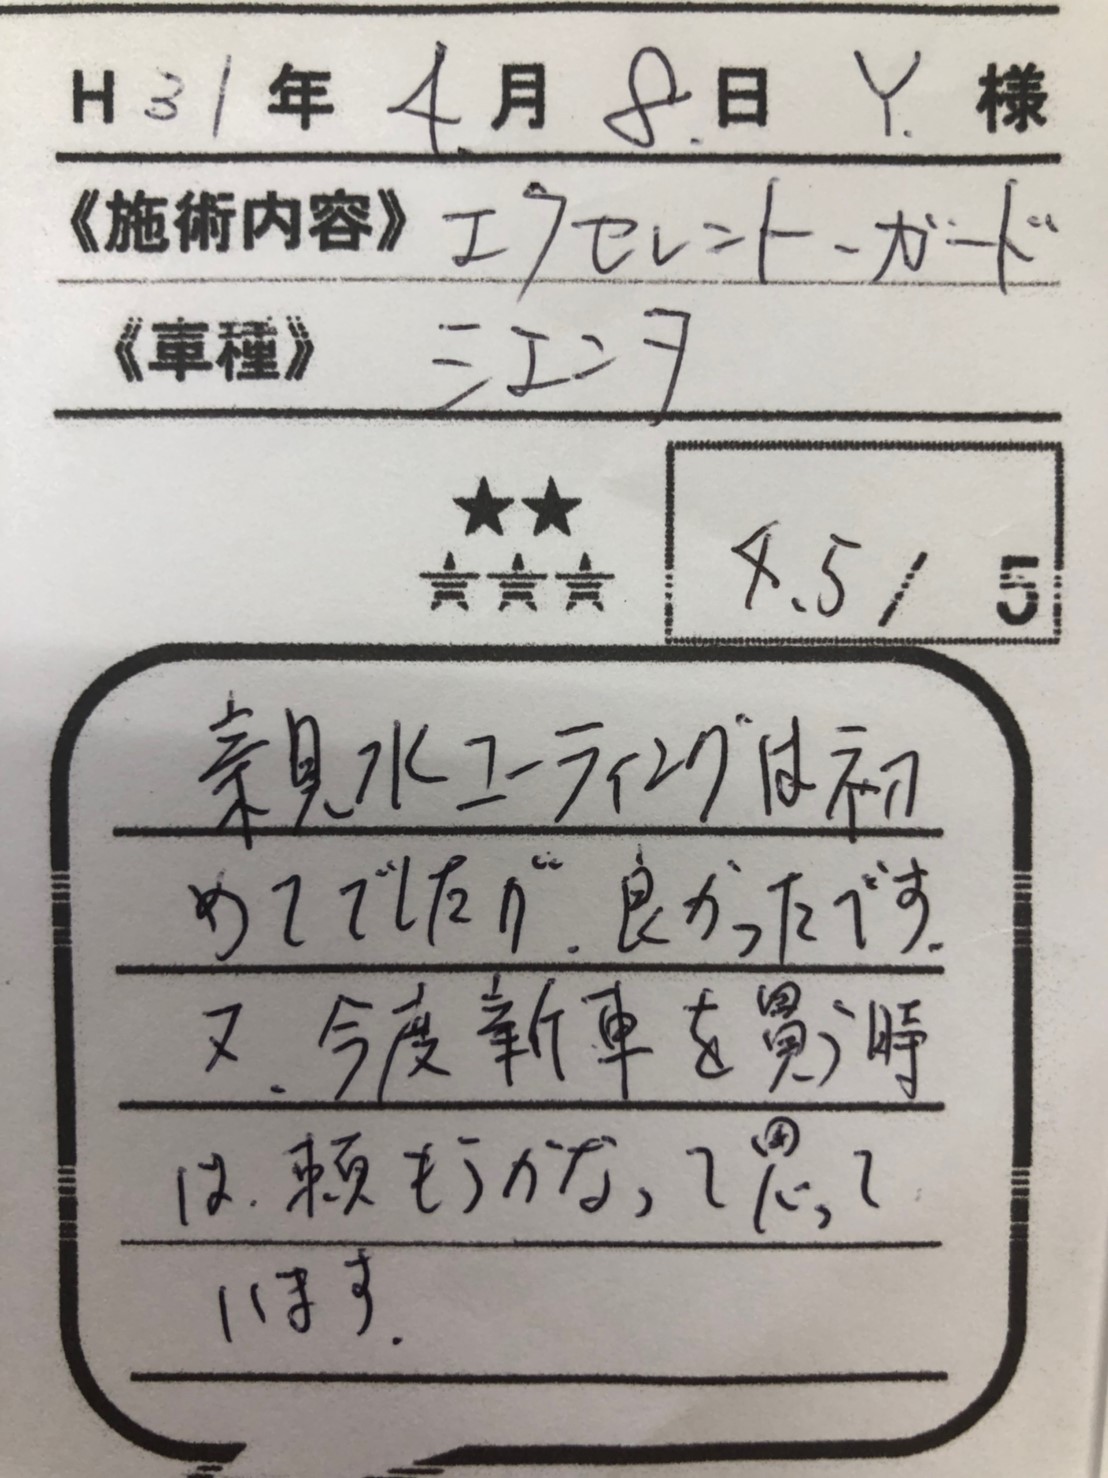 H31年 4月 8.日 Y.様
《施術内容》エクセレント-ガード
《車種》シエンタ
★★
★★★
4.5/5
親水コーティングは初
めてでしたが、良かったです。
又、今度新車を買う時
は、頼もうかなって思って
います。